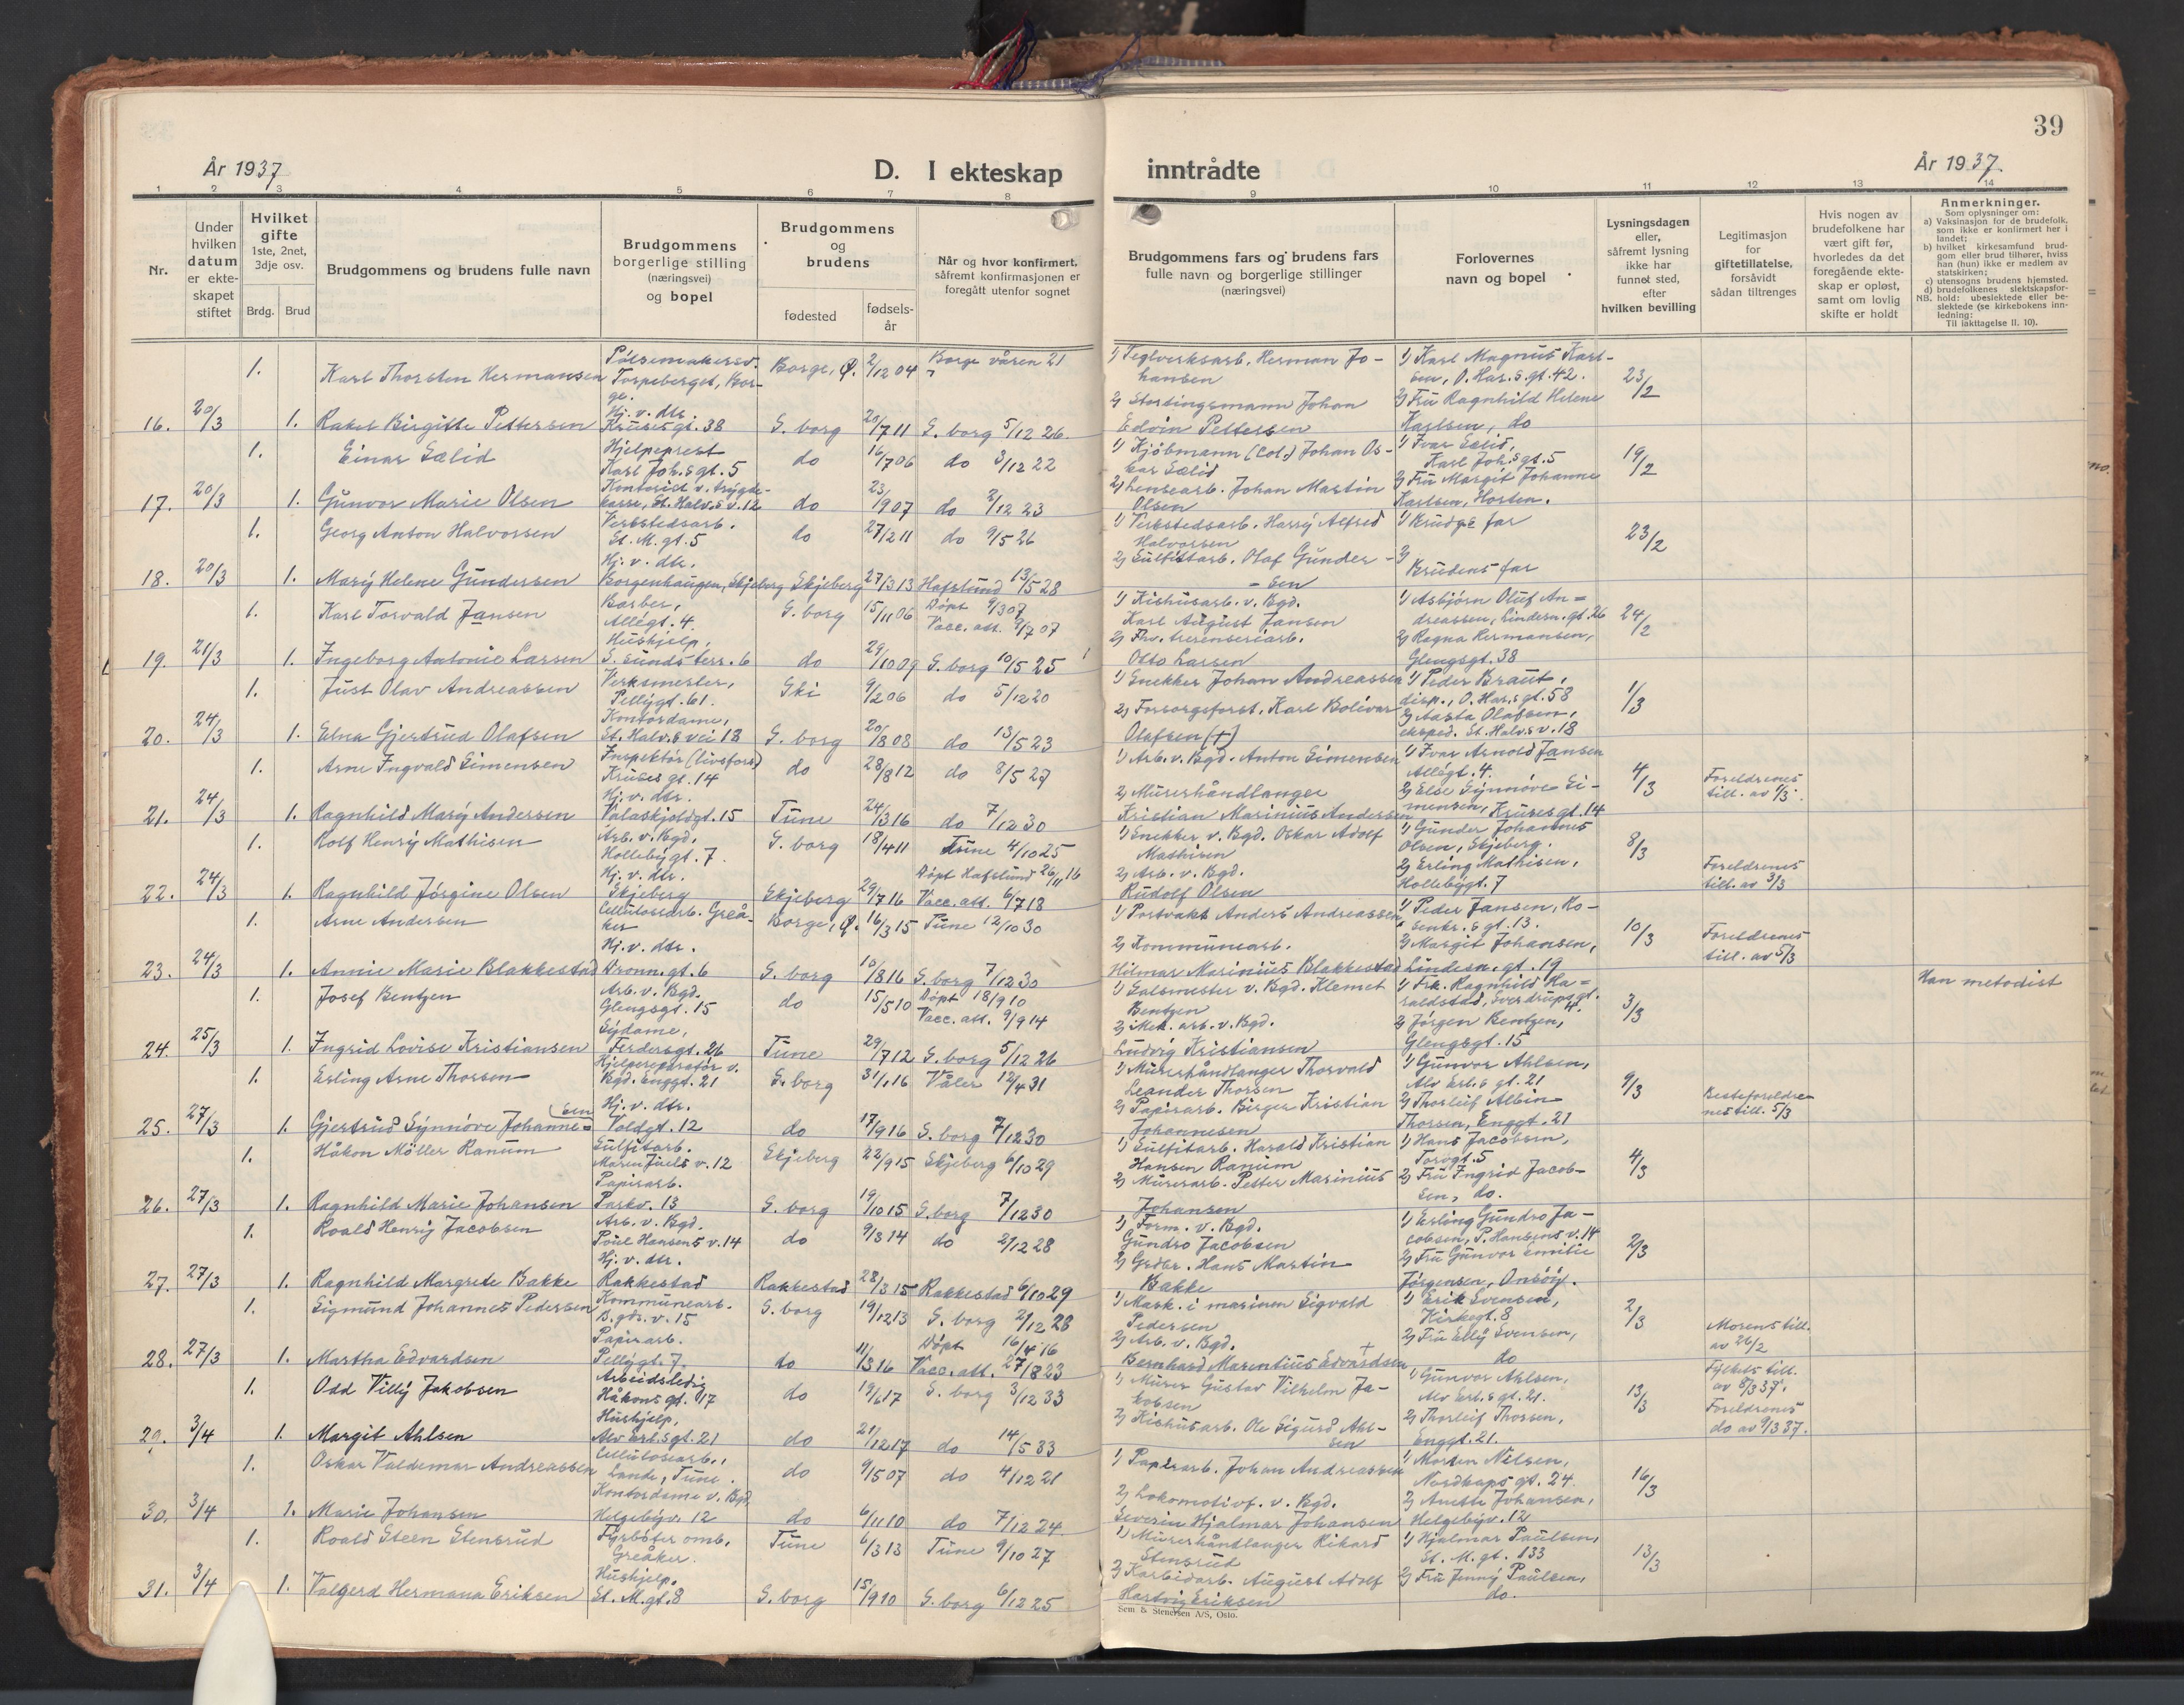 39
År 1937
D. I ekteskap inntrådte
År 1937.
1 2 3 4 5 6 7 8 9 10 11 12 13 14
Nr.
Under hvilken datum er ekteskapet stiftet
Hvilket gifte
1ste, 2net, 3dje osv.
Brdg. Brud
Brudgommens og brudens fulle navn
Brudgommens borgerlige stilling (næringsvei) og bopel
Brudgommens og brudens
fødested
fødselsår
Når og hvor konfirmert, såfremt konfirmasjonen er foregått utenfor sognet
Brudgommens fars og brudens fars fulle navn og borgerlige stillinger (næringsvei)
Forlovernes navn og bopel
Lysningsdagen eller, såfremt lysning ikke har funnet sted, efter hvilken bevilling
Legitimasjon for giftetillatelse, forsåvidt sådan tiltrenges
Hvis nogen av brudefolkene har vært gift før, hvorledes da det foregående ekteskap er opløst, samt om lovlig skifte er holdt
Anmerkninger.
Som oplysninger om:
a) Vaksinasjon for de brudefolk, som ikke er konfirmert her i landet;
b) hvilket kirkesamfund brudgom eller brud tilhører, hvis han (hun) ikke er medlem av statskirken;
c) utensogns brudens hjemsted.
d) brudefolkenes slektskapsforhold: ubeslektede eller beslektede (se kirkebokens innledning:
NB.
Til iakttagelse II. 10).
1. Karl Thorsten Hermansen Pølsemakersv. Torpeberget, Borge. Borge, Ø. 2/12 04 Borge våren 21 1) Teglverksarb. Herman Johansen 1) Karl Magnus Karlsen, O. Har.s.gt. 42. 23/2
16. 20/3 1. Rakel Birgitte Pettersen Hj. v. dtr. Kruses gt. 38 S. borg 20/7 11 S. borg 5/12 26. 2) Stortingsmann Johan Edvin Pettersen 2) Fru Ragnhild Helene Karlsen, do
1. Einar Sælid Hjelpeprest Karl Joh.s gt. 5 do 16/7 06 do 3/12 22 1) Kjøbmann (Col.) Johan Oskar Sælid 1) Ivar Sælid, Karl Joh.s gt. 5 19/2
17. 20/3 1. Gunvor Marie Olsen Kontorist v. trygdekasse, St. Halv.s v. 12 do 23/9 07 do 2/12 23 2) Lensearb. Johan Martin Olsen 2) Fru Margit Johanne Karlsen, Horten.
1. Georg Anton Halvorsen Verkstedsarb. St. M. gt. 5 do 27/2 11 do 9/5 26 1) Verkstedsarb. Harry Alfred Halvorsen 1) Brudgs far 23/2
18. 20/3 1. Mary Helene Gundersen Hj. v. dtr. Borgenhaugen, Skjeberg Skjeberg 27/3 13 Hafslund 13/5 28 2) Sulfittarb. Olaf Gundersen 2) Brudens far
1. Karl Torvald Jansen Barber, Allégt. 4. S. borg 15/11 06 Døpt 9/3 07 Vacc. att. 9/7 07 1) Kishusarb. v. Bgd. Karl August Jansen 1) Asbjørn Oluf Andreassen, Lindesn. gt. 26 24/2
19. 21/3 1. Ingeborg Antonie Larsen Hushjelp, S. Sunds terr. 6 do 29/10 09 S. borg 10/5 25 Otto Larsen 2) Ragna Hermansen, Glengsgt. 38
1. Just Olav Andreassen Verksmester, Pellygt. 61. Ski 9/2 06 do 5/12 20 1) Snekker Johan Andreassen 1) Peder Braut, disp., O. Har.s gt. 58 1/3
20. 24/3 1. Edna Gjertrud Olafsen Kontordame, St. Halv.s vei 18 S. borg 20/8 08 do 13/5 23 2) Forsorgeforst. Karl Bolivar Olafsen (+) 2) Aasta Olafsen, eksped. St. Halv.s v. 18
1. Arne Ingvald Simensen Inspektør (livsfors) Kruses gt. 14 do 28/8 12 do 8/5 27 1) Arb. v. Bgd. Anton Simensen 1) Ivar Arnold Jansen Allégt. 4. 4/3 Foreldrenes till. av 1/3.
21. 24/3 1. Ragnhild Mary Andersen Hj. v. dtr. Valaskjoldgt. 15 Tune 24/3 16 do 7/12 30 2) Murerhåndlanger Kristian Marinius Andersen 2) Else Synnøve Simensen, Kruses gt. 14
1. Rolf Henry Mathisen Arb. v. Bgd. Hollebygt. 7. S. borg 18/4 11 Tune 4/10 25 1) Snekker v. Bgd. Oskar Adolf Mathisen 1) Gunder Johannes Olsen, Skjeberg. 8/3
22. 24/3 1. Ragnhild Jørgine Olsen Hj. v. dtr. Skjeberg Skjeberg 29/7 16 Døpt Hafslund 26/11 16 Vacc. att. 6/7 18 2) Arb. v. Bgd. Rudolf Olsen 2) Erling Mathisen, Hollebygt. 7 Foreldrenes till. av 3/3
1. Arne Andersen Cellulosearb. Greåker Borge, Ø. 16/3 15 Tune 12/10 30 1) Portvakt Anders Andreassen 1) Peder Jansen, Rosentr.s gt. 13. 10/3
23. 24/3 1. Annie Marie Blakkestad Hj. v. dtr. Dronn. gt. 6 S. borg 10/8 16 S. borg 7/12 30 2) Kommunearb. Hilmar Marinius Blakkestad 2) Margit Johansen, Lindesn. gt. 19 Foreldrenes till. av 5/3
1. Josef Bentzen Arb. v. Bgd. Glengsgt. 15 do 15/5 10 Døpt 18/9 10 Vacc. att. 9/9 14 1) Salsmester v. Bgd. Klemet Bentzen 1) Frk. Ragnhild Haraldstad, Sverdrupsgt. 4. 3/3 Han metodist
24. 25/3 1. Ingrid Lovise Kristiansen Sydame, Ferdersgt. 26 Tune 29/7 12 S. borg 5/12 26 2) Mek. arb. v. Bgd. Ludvig Kristiansen 2) Jørgen Bentzen, Glengsgt. 15
1. Erling Arne Thorsen Hjelpereparatør v. Bgd. Enggt. 21 S. borg 31/1 16 Våler 12/4 31 1) Murerhåndlanger Thorvald Leander Thorsen 1) Gunvor Ahlsen, Alv Erl.s gt. 21 9/3
25. 27/3 1. Gjertrud Synnøve Johannesen Hj. v. dtr. Voldgt. 12 do 17/9 16 S. borg 7/12 30 2) Papirarb. Birger Kristian Johannesen 2) Thorleif Albin Thorsen, Enggt. 21 Besteforeldrenes till. 5/3
1. Håkon Möller Ranum Sulfitarb. Maren Juels v. 12 Skjeberg 22/9 15 Skjeberg 6/10 29 1) Sulfitarb. Harald Kristian Hansen Ranum 1) Hans Jacobsen, Torvgt. 5 4/3
26. 27/3 1. Ragnhild Marie Johansen Papirarb. Parkv. 13 S. borg 19/10 15 S. borg 7/12 30 2) Murerarb. Petter Marinius Johansen 2) Fru Ingrid Jacobsen, do.
1. Roald Henry Jacobsen Arb. v. Bgd. Poul Hansens v. 14 do 9/3 14 do 2/12 28 1) Form. v. Bgd. Gundro Jacobsen 1) Erling Gundro Jacobsen, P. Hansens v. 14 2/3
27. 27/3 1. Ragnhild Margrete Bakke Hj. v. dtr. Rakkestad Rakkestad 28/3 15 Rakkestad 6/10 29 2) Grdbr. Hans Martin Bakke 2) Fru Gunvor Emilie Jørgensen, Onsøy.
1. Sigmund Johannes Pedersen Kommunearb. S. borg 19/12 13 S. borg 2/12 28 1) Mask. i marinen Sigvald Pedersen 1) Erik Svensen, Kirkegt. 8 2/3
28. 27/3 1. Martha Edvardsen Papirarb. Pellygt. 7. do 11/3 16 Døpt 16/4 16 Vacc. att. 27/8 23 2) Arb. v. Bgd. Bernhard Marentius Edvardsen + 2) Fru Elly Svensen, do Morens till. av 26/2
1. Odd Villy Jakobsen Arbeidsledig Håkons gt. 17 do 19/6 17 S. borg 3/12 33 1) Murer Gustav Vilhelm Jakobsen 1) Gunvor Ahlsen, Alv Erl.s gt. 21. 13/3 Fylkets till. av 8/3 37.
29. 3/4 1. Margit Ahlsen Hushjelp, Alv Erl.s gt. 21 do 21/12 17 do 14/5 33 2) Kishusarb. Ole Sigurd Ahlsen 2) Thorleif Thorsen, Enggt. 21. Foreldrenes do av 9/3 37.
1. Oskar Valdemar Andreassen Cellulosearb., Lande, Tune. do 9/5 07 do 4/12 21 1) Papirarb. Johan Andreassen 1) Morten Nilsen, Nordkaps gt. 24. 16/3
30. 3/4 1. Marie Johansen Kontordame v. Bgd. Helgebyv. 12 do 6/11 10 do 7/12 24 2) Lokomotivf. v. Bgd. Severin Hjalmar Johansen 2) Anette Johansen, Helgebyv. 12
1. Roald Steen Stensrud Fyrbøter omb. Greåker. Tune 6/3 13 Tune 9/10 27 1) Murerhåndlanger Rikard Stensrud 1) Hjalmar Paulsen, St. M. gt. 133 13/3
31. 3/4 1. Valgerd Hermana Eriksen Hushjelp. St. M. gt. 8 S. borg 15/9 10 S. borg 6/12 25 2) Karbidarb. August Adolf Hartvig Eriksen 2) Fru Jenny Paulsen, do.
Sem & Stenersen A/S, Oslo.